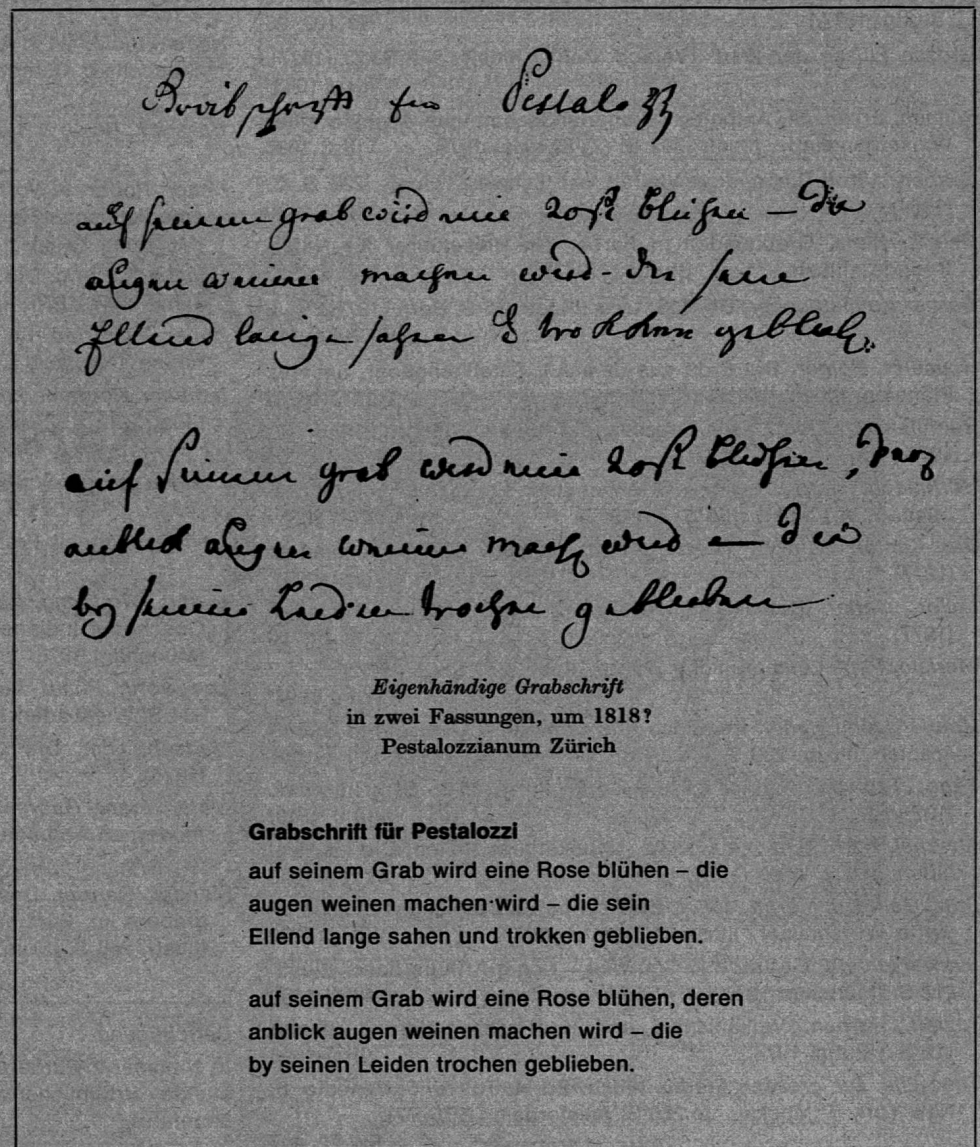 Grabschrift für Pestalozzi
auf seinem grab wird eine rose blühen – die
augen weinen machen wird – die sein
Ellend lange sahen & trokken geblieben.
auf seinem grab wird eine rose blühen, deren
anblick augen weinen mach wird – die
by seinen Leiden trochen geblieben
Eigenhändige Grabschrift
in zwei Fassungen, um 1818?
Pestalozzianum Zürich
Grabschrift für Pestalozzi
auf seinem Grab wird eine Rose blühen – die
augen weinen machen wird – die sein
Ellend lange sahen und trokken geblieben.
auf seinem Grab wird eine Rose blühen, deren
anblick augen weinen machen wird – die
by seinen Leiden trochen geblieben.